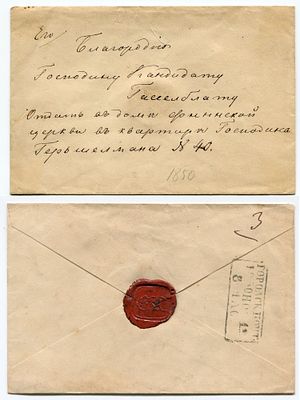 Его
Благородію
Господину Кандидату
Гасселблату
Отдать въ домѣ финнской
церквы въ квартирѣ Господина
Гершелмана № 40.
1850
3
ГОРОДСК. ПОЧТ
8 ЧАС